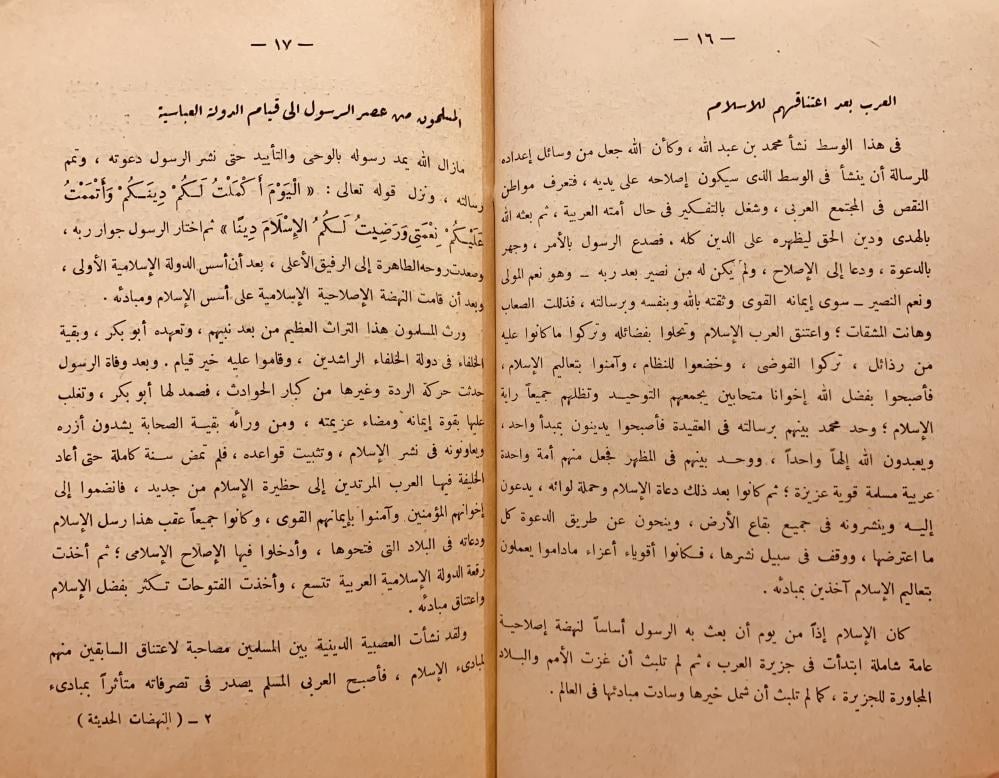 — ١٦ —
العرب بعد اعتناقهم للاسلام
فى هذا الوسط نشأ محمد بن عبد الله ، وكأن الله جعل من وسائل إعداده
للرسالة أن ينشأ فى الوسط الذى سيكون إصلاحه على يديه ، فتعرف مواطن
النقص فى المجتمع العربى ، وشغل بالتفكير فى حال أمته العربية ، ثم بعثه الله
بالهدى ودين الحق ليظهره على الدين كله . فصدع الرسول بالأمر ، وجهر
بالدعوة ، ودعا إلى الإصلاح ، ولم يكن له من نصير بعد ربه — وهو نعم المولى
ونعم النصير — سوى إيمانه القوى وثقته بالله وبنفسه وبرسالته ، فذللت الصعاب
وهانت المشقات ؛ واعتنق العرب الإسلام وتحلوا بفضائله وتركوا ما كانوا عليه
من رذائل ، تركوا الفوضى ، وخضعوا للنظام ، وآمنوا بتعاليم الإسلام ،
فأصبحوا بفضل الله إخوانا متحابين يجمعهم التوحيد وتظلهم جميعاً راية
الإسلام ؛ وحد محمد بينهم برسالته فى العقيدة فأصبحوا يدينون بمبدأ واحد ،
ويعبدون الله إلهاً واحداً ، ووحد بينهم فى المظهر فجعل منهم أمة واحدة
عربية مسلمة قوية عزيزة ؛ ثم كانوا بعد ذلك دعاة الإسلام وحملة لوائه ، يدعون
إليه وينشرونه فى جميع بقاع الأرض ، وينحون عن طريق الدعوة كل
ما اعترضها ، ووقف فى سبيل نشرها ، فكانوا أقوياء أعزاء ماداموا يعملون
بتعاليم الإسلام آخذين بمبادئه .
كان الإسلام إذاً من يوم أن بعث به الرسول أساساً لنهضة إصلاحية
عامة شاملة ابتدأت فى جزيرة العرب ، ثم لم تلبث أن غزت الأمم والبلاد
المجاورة للجزيرة ، كما لم تلبث أن شمل خيرها وسادت مبادئها فى العالم .
— ١٧ —
المسلمون من عصر الرسول الى قيام الدولة العباسية
مازال الله يمد رسوله بالوحى والتأييد حتى نشر الرسول دعوته ، وتمم
رسالته ، ونزل قوله تعالى : « الْيَوْمَ أَكْمَلْتُ لَكُمْ دِينَكُمْ وَأَتْمَمْتُ
عَلَيْكُمْ نِعْمَتِى وَرَضِيتُ لَكُمُ الإِسْلَامَ دِينًا » ثم اختار الرسول جوار ربه ،
وصعدت روحه الطاهرة إلى الرفيق الأعلى ، بعد أن أسس الدولة الإسلامية الأولى ،
وبعد أن قامت النهضة الإصلاحية الإسلامية على أسس الإسلام ومبادئه .
ورث المسلمون هذا التراث العظيم من بعد نبيهم ، وتعهده أبو بكر ، وبقية
الخلفاء فى دولة الخلفاء الراشدين ، وقاموا عليه خير قيام . وبعد وفاة الرسول
حدثت حركة الردة وغيرها من كبار الحوادث ، فصمد لها أبو بكر ، وتغلب
عليها بقوة إيمانه ومضاء عزيمته ، ومن ورائه بقية الصحابة يشدون أزره
ويعاونونه فى نشر الإسلام ، وتثبيت قواعده ، فلم تمض سنة كاملة حتى أعاد
الخليفة فيها العرب المرتدين إلى حظيرة الإسلام من جديد ، فانضموا إلى
إخوانهم المؤمنين وآمنوا بإيمانهم القوى ، وكانوا جميعاً عقب هذا رسل الإسلام
ودعاته فى البلاد التى فتحوها ، وأدخلوا فيها الإصلاح الإسلامى ؛ ثم أخذت
رقعة الدولة الإسلامية العربية تتسع ، وأخذت الفتوحات تكثر بفضل الإسلام
واعتناق مبادئه .
ولقد نشأت العصبية الدينية بين المسلمين مصاحبة لاعتناق السابقين منهم
لمبادىء الإسلام ، فأصبح العربى المسلم يصدر فى تصرفاته متأثراً بمبادىء
٢ — ( النهضات الحديثة )